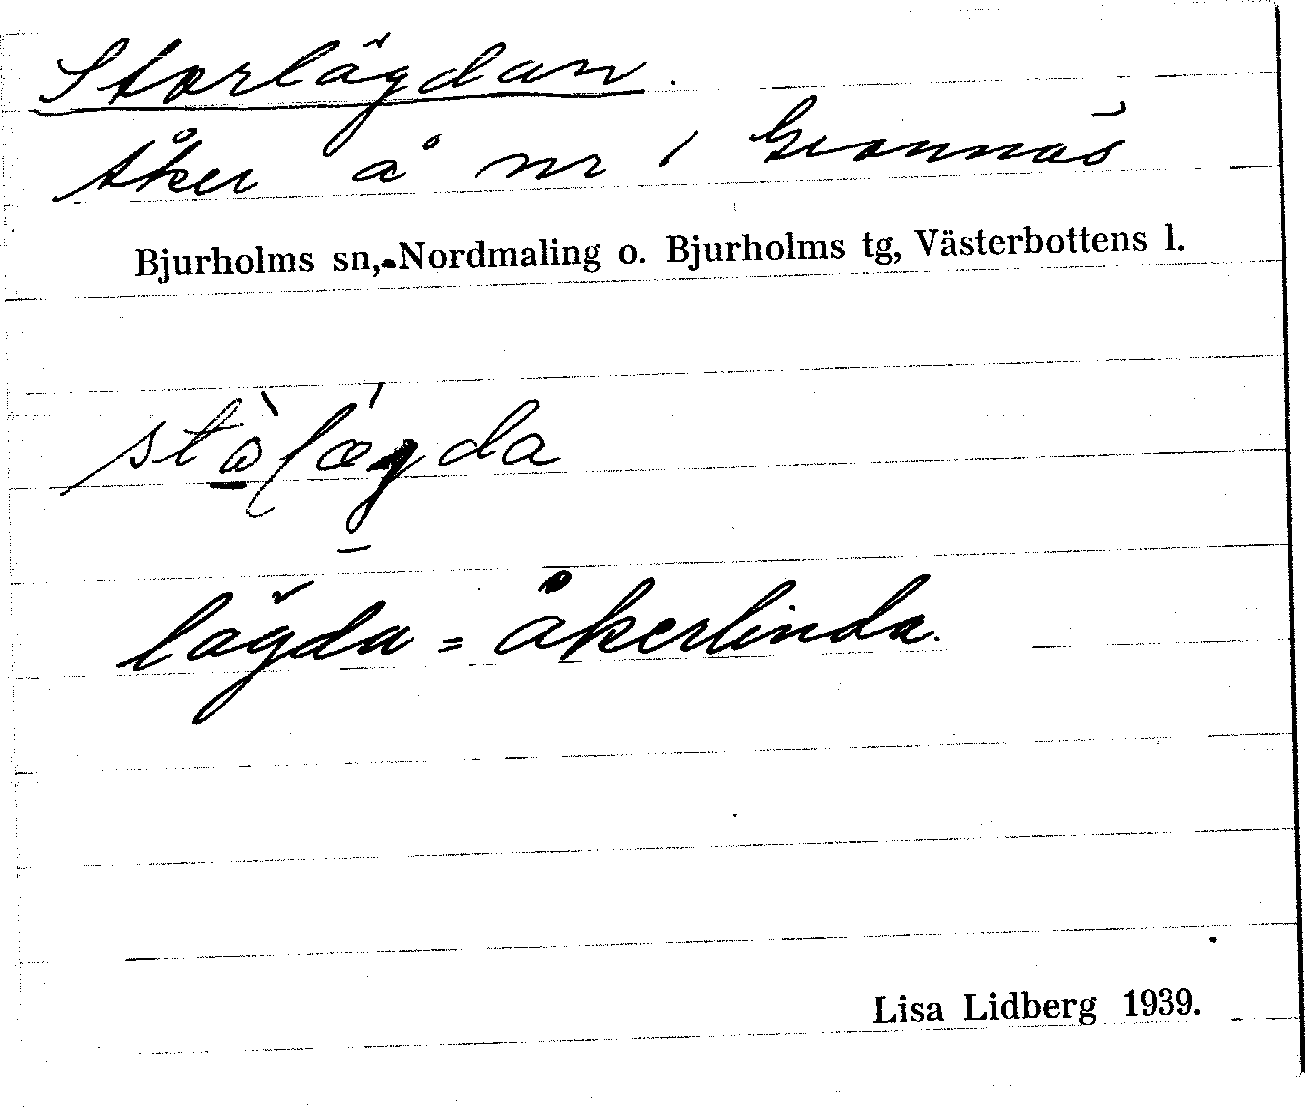 Storlägdan.
Åker å nr 1 Brännäs
Bjurholms sn, Nordmaling o. Bjurholms tg, Västerbottens l.
stòlǽgda
lägda = åkerlinda.
Lisa Lidberg 1939.